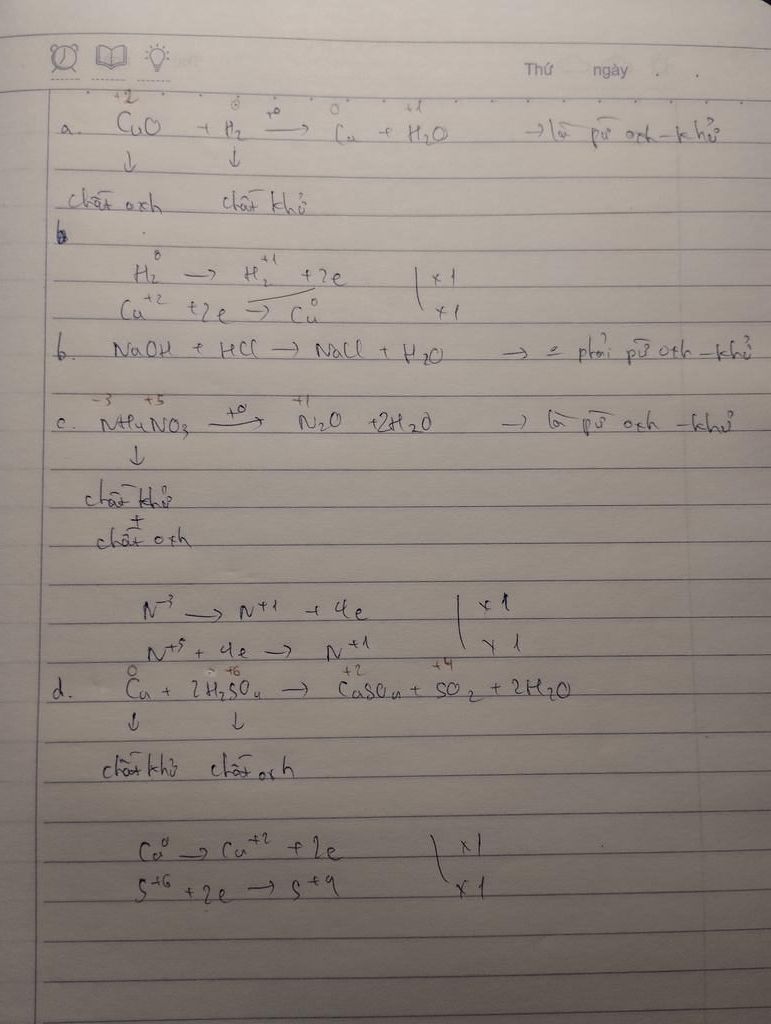 Thứ ngày . .
+2 0 0 +1
a. CuO + H2 -tº-> Cu + H2O -> là pứ oxh-khử
↓ ↓
chất oxh chất khử
0 +1
H2 -> H2 + 2e | x1
Cu+2 + 2e -> Cu0 | x1
b. NaOH + HCl -> NaCl + H2O -> phải pứ oxh-khử
-3 +5 +1
c. NH4NO3 -tº-> N2O + 2H2O -> là pứ oxh-khử
↓
chất khử
+
chất oxh
N-3 -> N+1 + 4e | x1
N+5 + 4e -> N+1 | x1
0 +6 +2 +4
d. Cu + 2H2SO4 -> CuSO4 + SO2 + 2H2O
↓ ↓
chất khử chất oxh
Cu0 -> Cu+2 + 2e | x1
S+6 + 2e -> S+4 | x1